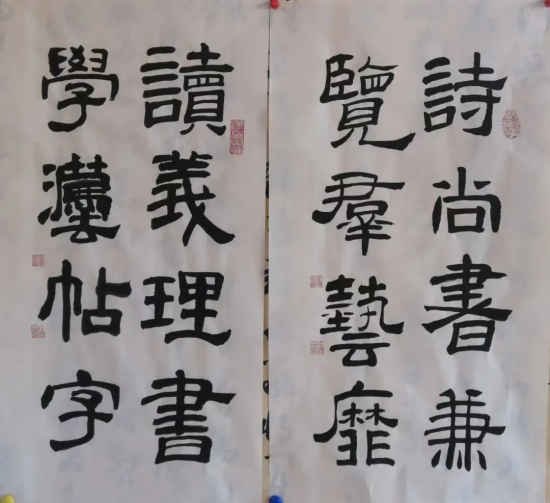 詩尚書兼
覽羣藝靡
讀義理書
學灋帖字